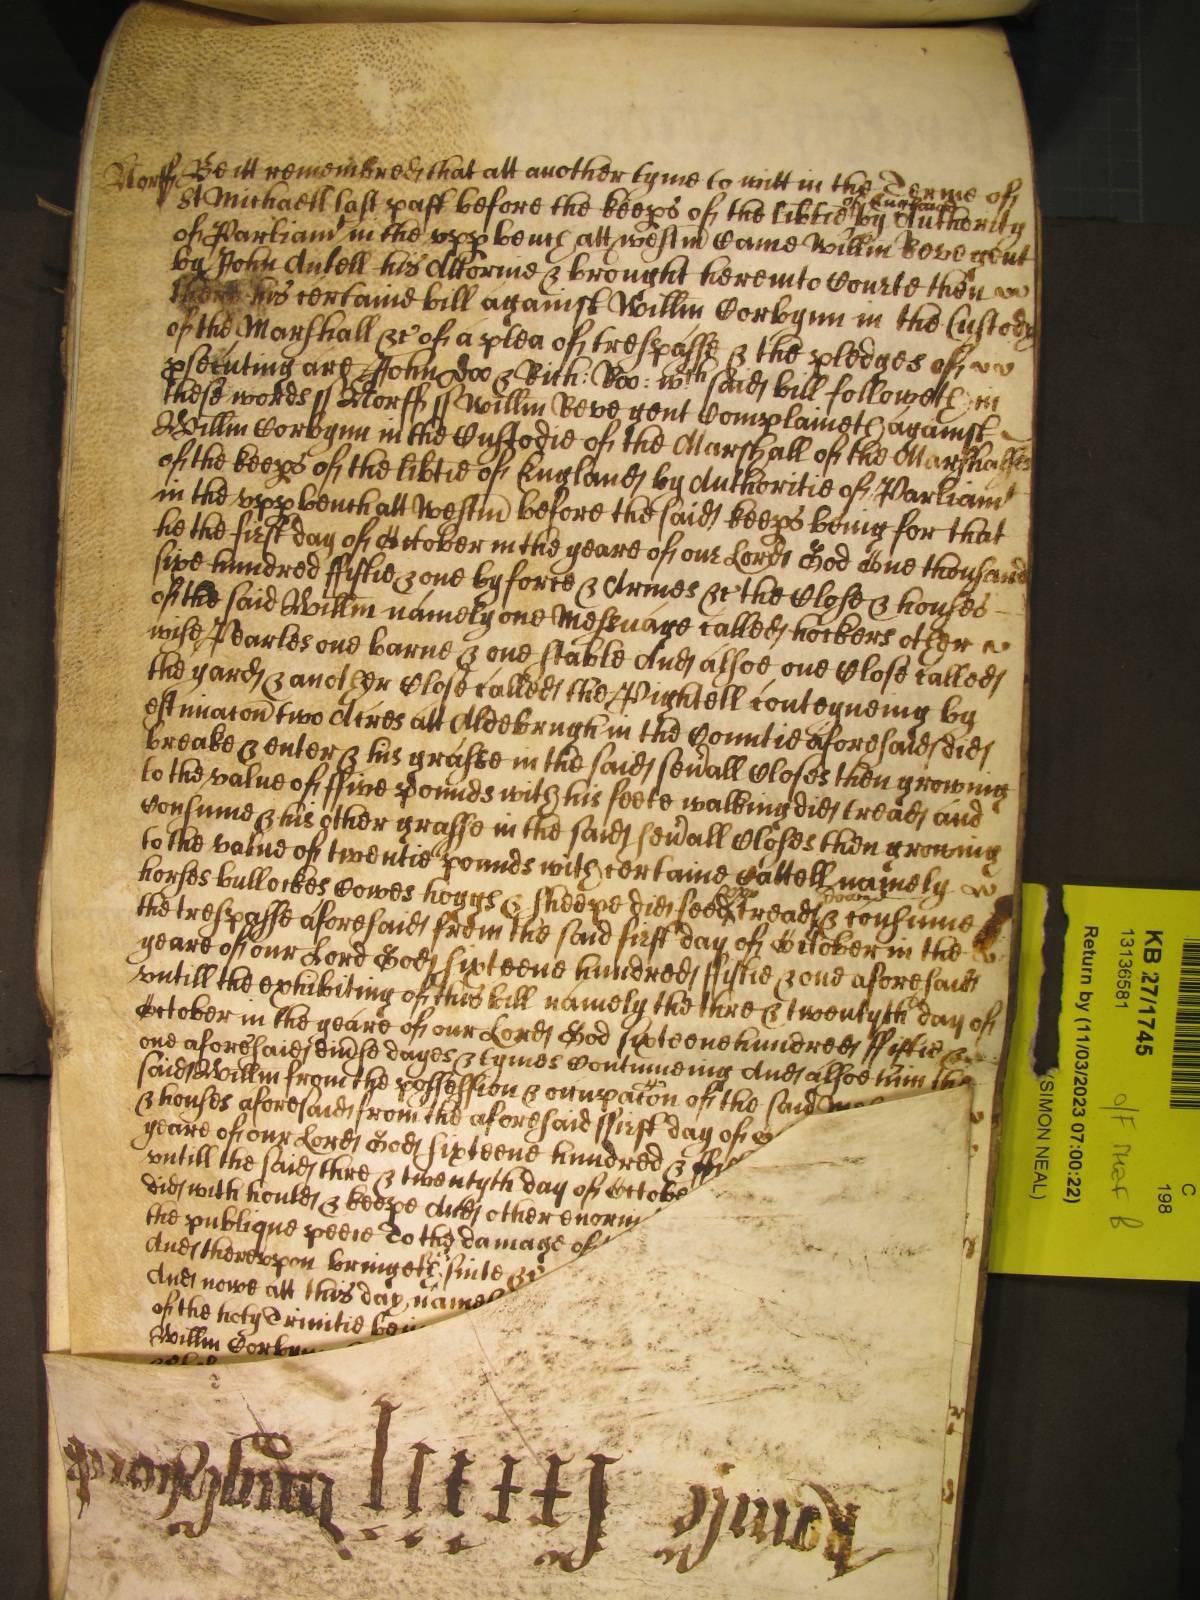 Norff Be itt remembred that att another tyme to witt in the Terme of
St Michaell last past before the keeps of the libtie of England by Authority
of Parliamt in the upp bench att westm Came Willm Beve gent
by John Antell his Attornie & brought here into Courte then
there his certaine bill against Willm Corbynn in the Custody
of the Marshall &c of a plea of trespasse & the pledges of
psecuting are John Doo & Rich: Roo: wch said bill followeth in
these words ss Norff ss Willm Beve gent Complaineth against
Willm Corbynn in the Custodie of the Marshall of the Marshalsea
of the keeps of the libtie of England by Authoritie of Parliamt
in the upp bench att Westm before the said keeps being for that
he the first day of October in the yeare of our Lord God One thousand
sixe hundred ffiftie & one by force & Armes &c the Close & houses
of the said Willm namely one Messuage called hockers other
wise Pearles one barne & one stable And alsoe one Close called
the yard & another Close called the Pightell conteyneing by
estimacon two Acres att Aldebrugh in the Countie aforesaid did
breake & enter & his grasse in the said sevall Closes then growing
to the value of ffive pounds with his feete walking did tread and
Consume & his other grasse in the said sevall Closes then growing
to the value of twentie pounds with certaine Cattell namely
horses bullockes Cowes hoggs & sheepe did feed tread & consume
the trespasse aforesaid from the said first day of October in the
yeare of our Lord God sixteene hundred ffiftie & one aforesaid
untill the exhibiting of this bill namely the thre & twentyth day of
October in the yeare of our Lord God sixteene hundred ffiftie &
one aforesaid divse dayes & tymes Continueing And alsoe him the
said Willm from the possession & occupacon of the said
& houses aforesaid from the aforesaid ffirst day of
yeare of our Lord God sixteene hundred &
untill the said thre & twentyth day of Octobe
did with hould & keepe And other enorm
the publique peece To the damage of
And thereupon bringeth suite &c
And nowe att this day namely
of the holy Trinitie
Willm Corbynn
KB 27/1745
13136581
Return by (11/03/2023 07:00:22)
(SIMON NEAL)
C
198